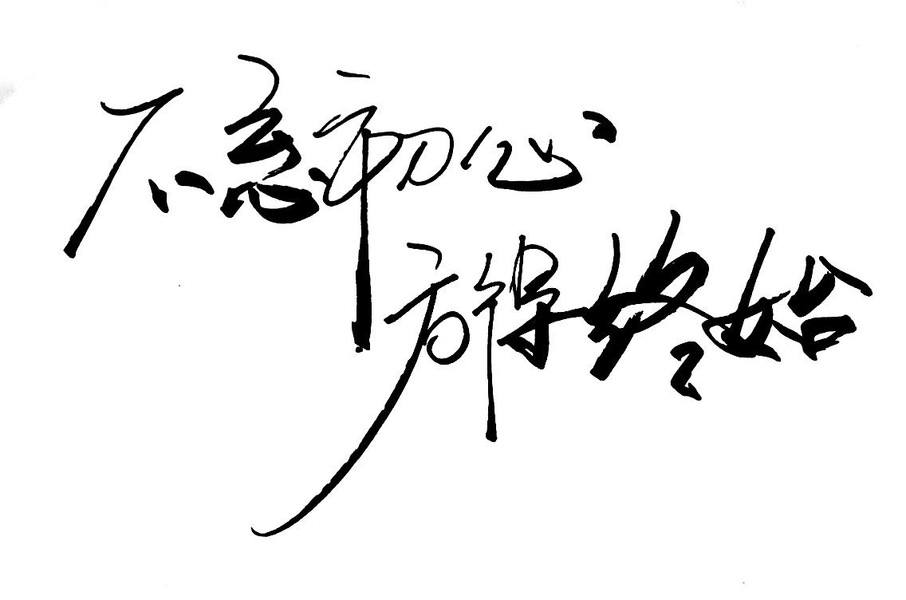 不忘初心
方得终始